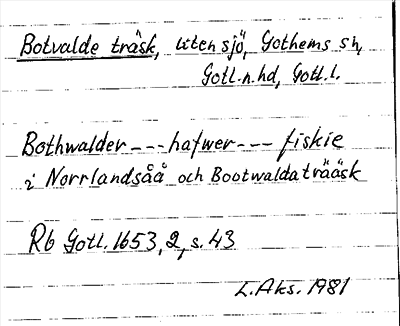 Botvalde träsk, liten sjö, Gothems sn,
Gotl. n. hd, Gotl. l.
Bothwalder --- hafwer --- fiskie
i Norrlandsåå och Bootwaldaträäsk
Rb Gotl. 1653, 2, s. 43
L. Aks. 1981